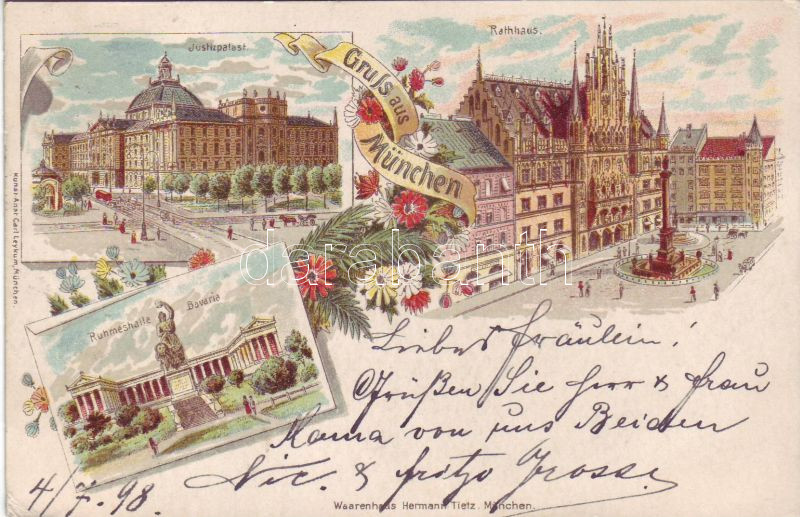 Justizpalast.
Rathhaus.
Gruss aus
München
Kunst-Anst. Carl Leykum, München.
darabanth
Ruhmeshalle Bavaria
Liebes Fräulein!
Grüßen Sie Herr & Frau
Mama von uns Beiden
Nic. & Fritzo Grosse
4/7. 98.
Waarenhaus Hermann Tietz, München.